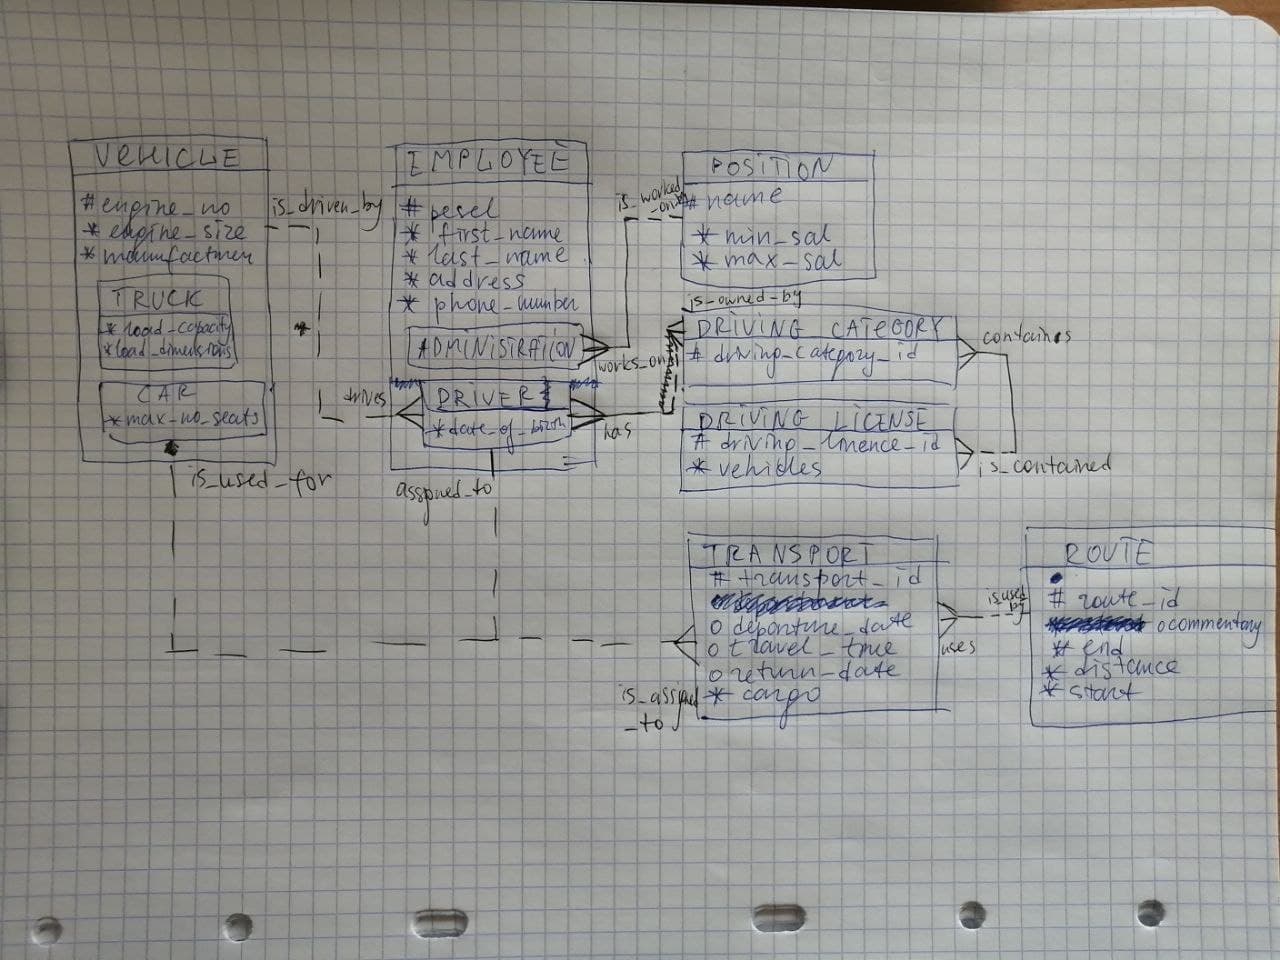 VEHICLE
# engine_no
* engine_size
* manufacturer
TRUCK
* load_capacity
* load_dimensions
CAR
* max_no_seats
is_used_for
is_driven_by
*
drives
EMPLOYEE
# pesel
* first_name
* last_name
* address
* phone_number
ADMINISTRATION
DRIVER
* date_of_birth
assgned_to
works_on
has
is_worked
_on
POSITION
# name
* min_sal
* max_sal
is_owned_by
DRIVING CATEGORY
# driving_category_id
contains
DRIVING LICENSE
# driving_linence_id
* vehicles
is_contained
TRANSPORT
# transport_id
o departure_date
o travel_time
o return_date
* cargo
is_assigned
_to
uses
is_used
by
ROUTE
# route_id
o commentary
* end
* distance
* start